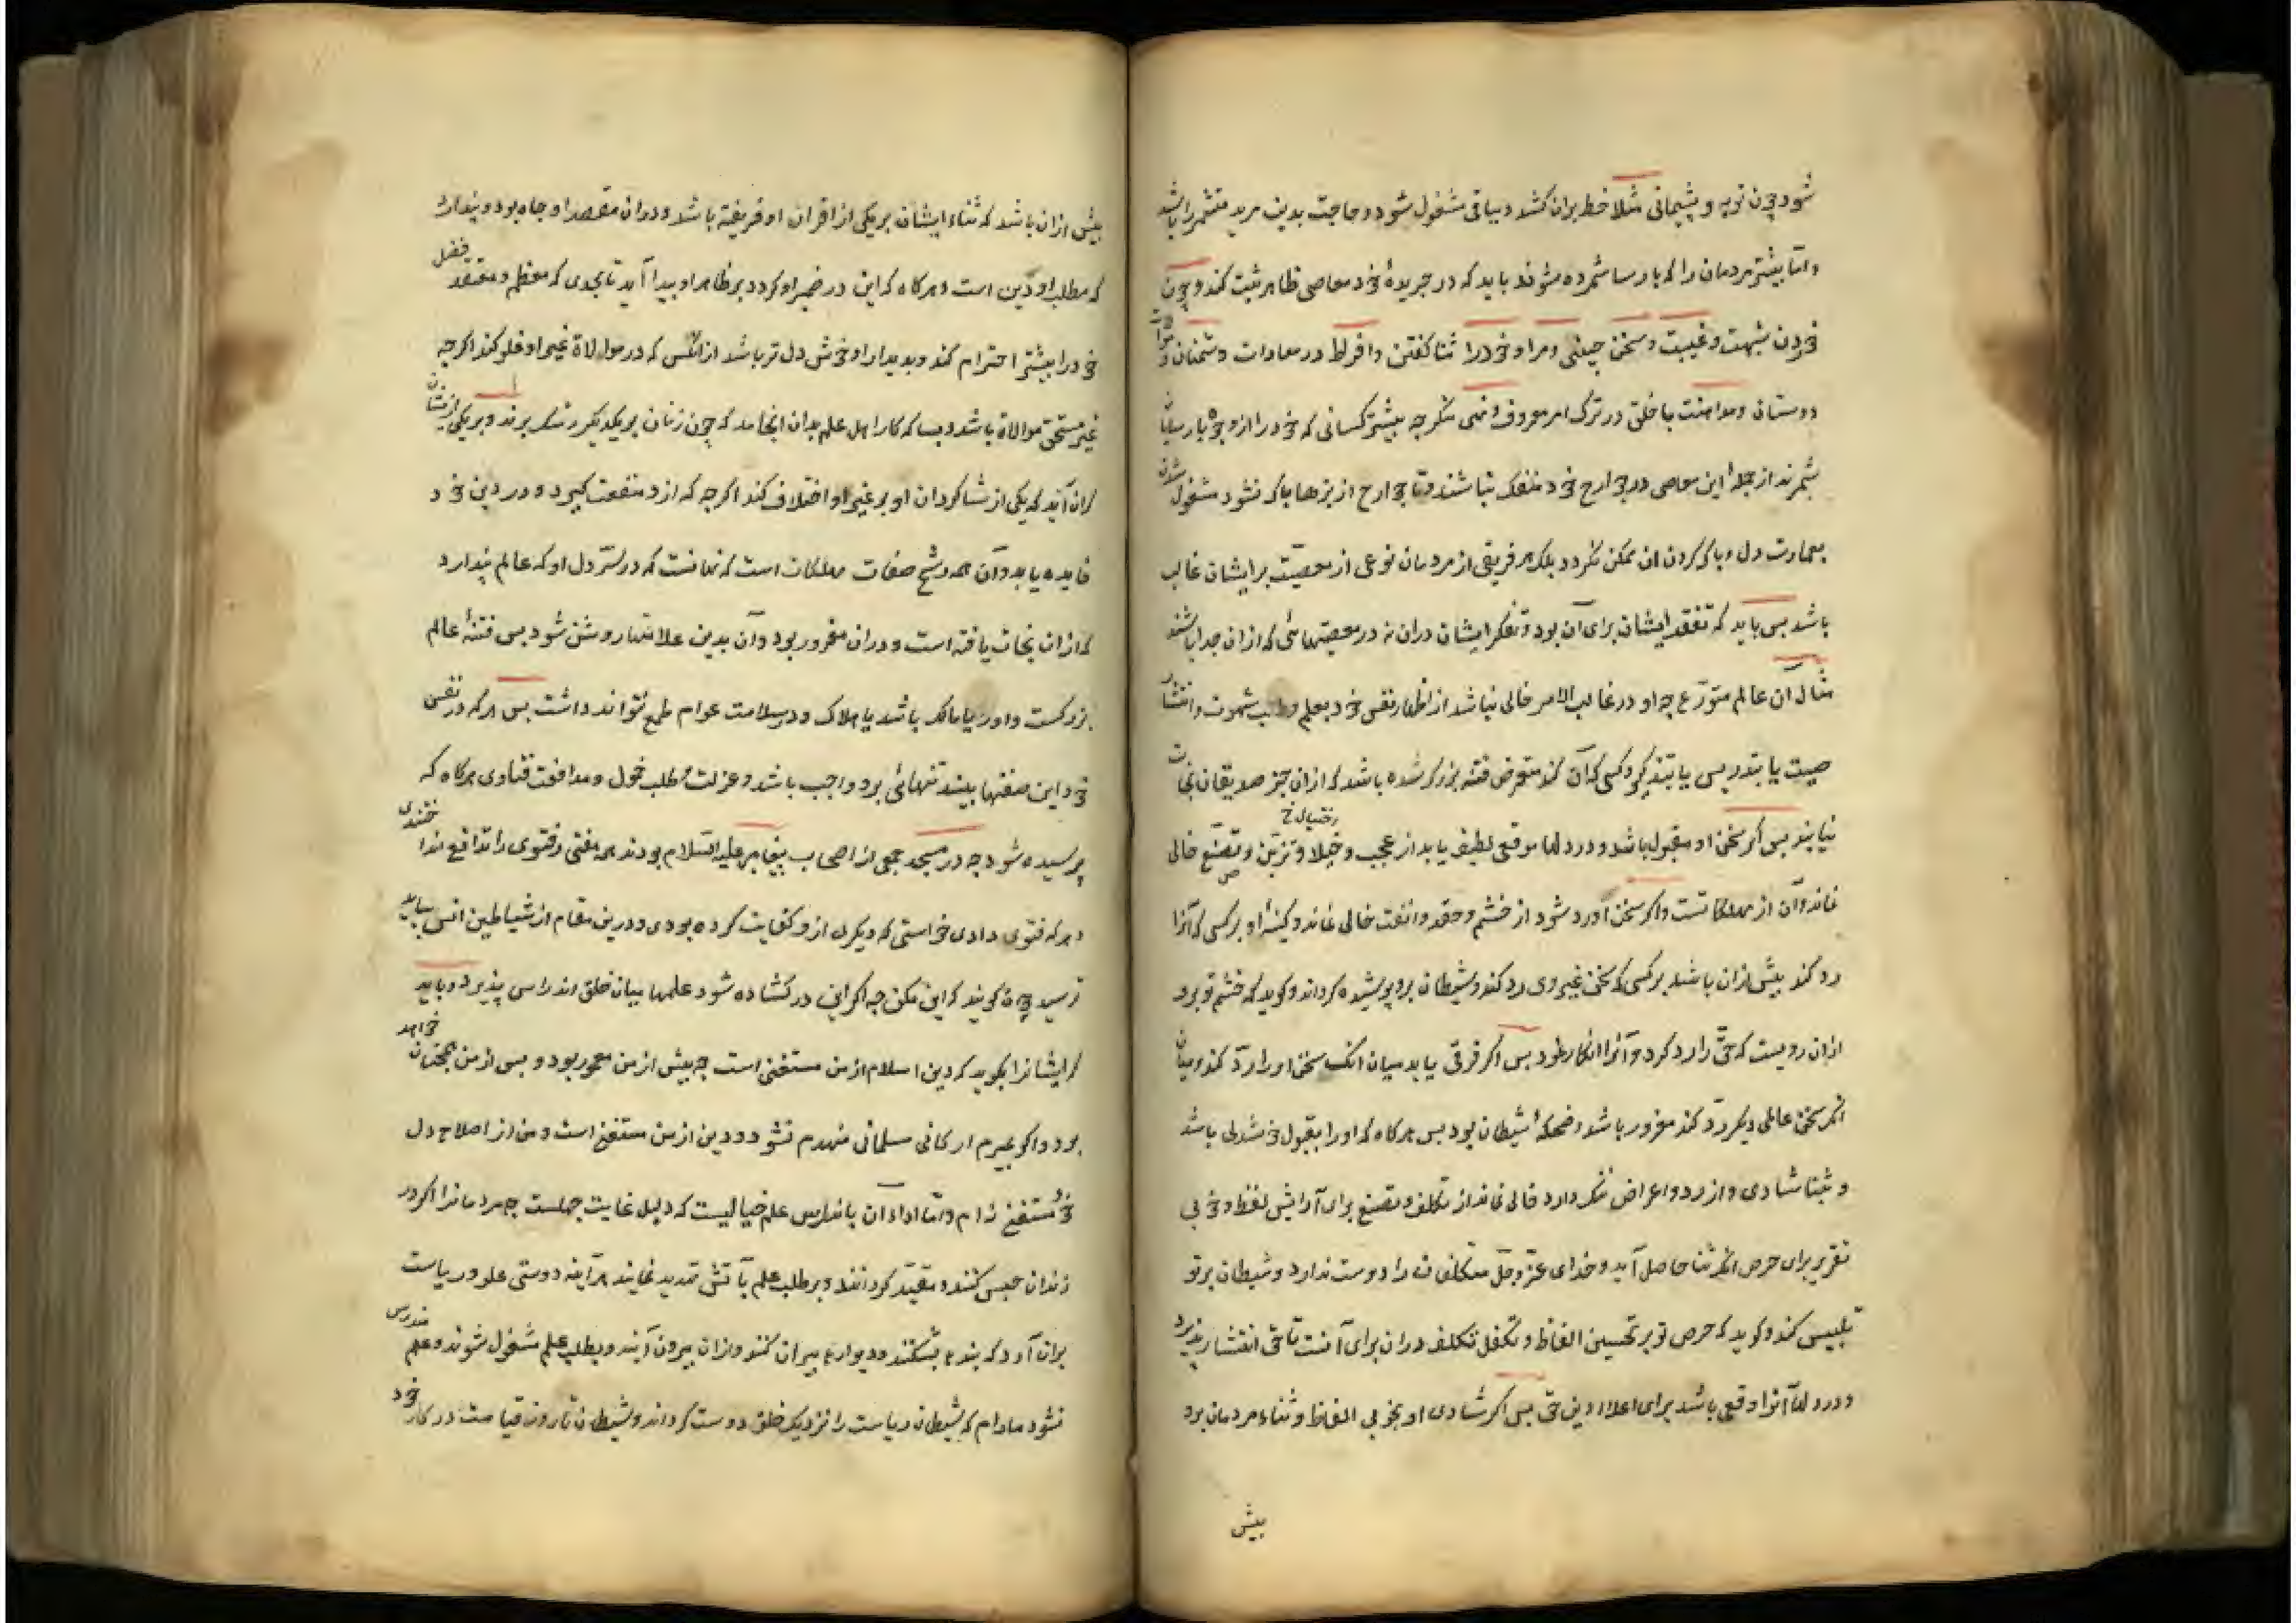 شود چون توبه و پشیمانی مثلا خط بران کشد و بباقی مشغول شود و حاجت بدین مرید متشمر را باشد
و اما بیشتر مردمان را که پارسا شمرده شوند باید که در جریدهٔ خود معاصی ظاهر ثبت کنند چون
خوردن شبهت و غیبت و سخن چینی و مرا و خود را ثنا گفتن و افراط در معادات دشمنان و موالات
دوستان و مداهنت با خلق در ترک امر معروف و نهی منکر چه بیشتر کسانی که خود را از وجوه پارسایان
شمرند از جملهٔ این معاصی در جوارح خود منفک نباشند و تا جوارح از بزه‌ها پاک نشود مشغول شدن
بعمارت دل و پاک کردن ان ممکن نگردد بلکه هر فریقی از مردمان نوعی از معصیت بر ایشان غالب
باشد پس باید که تفقد ایشان برای آن بود و تفکر ایشان دران نه در معصیتهائی که ازان جدا باشند
مثال آن عالم متورع چه او در غالب الامر خالی نباشد از اظهار نفس خود بعلم و طلب شهرت و انتشار
صیت یا بتدریس یا بتذکیر و کسی که آن کند متعرض فتنه بزرگ شده باشد که ازان جز صدیقان نجات
نیابند پس اگر سخن او مقبول باشد و در دلها موقعی لطیف یابد از عجب و خیلا و تزین و تصنع خالی
نماند و آن از مهلکاتست و اگر سخن او رد شود از خشم و حقد و انفت خالی نماند و کینهٔ او بر کسی که آنرا
رد کند بیش ازان باشد بر کسی که سخن غیر وی رد کند و شیطان برو پوشیده گرداند و گوید که خشم تو برد
ازان رویست که حق را رد کرد و آنرا انکار نمود پس اگر فرقی یابد میان انک سخن او را رد کند و میان
انکه سخن عالمی دیگر رد کند مغرور باشد و ضحکهٔ شیطان بود پس هرگاه که او را بقبول خوشدلی باشد
و بثنا شادی و از رد و اعراض ننگ دارد خالی نماند از تکلف و تصنع برای آرایش لفظ و خوبی
تقریر برای حرص انکه ثنا حاصل آید و خدای عزوجل متکلفان را دوست ندارد و شیطان برو
تلبیس کند و گوید که حرص تو بر تحسین الفاظ و تکفل تکلف دران برای آنست تا حق انتشار پذیرد
و در دلها آنرا وقعی باشد برای اعلاء دین حق پس اگر شادی او بخوبی الفاظ و ثناء مردمان بود
بیش
بیش ازان باشد که ثناء ایشان بر یکی از اقران او فریفته باشد و دران مقصد او جاه بود و پندارد
که مطلب او دین است و هرگاه که این در ضمیر او گردد بر ظاهر او پیدا آید تا بحدی که معظم و معتقد فضل
خود را بیشتر احترام کند و بدیدار او خوش دل تر باشد ازانکس که در موالاة غیر او غلو کند اگرچه
غیر مستحق موالاة باشد و بسا که کار اهل علم بدان انجامد که چون زنان بر یکدیگر رشک برند و بر یکی ازیشان
گران آید که یکی از شاگردان او بر غیر او اختلاف کند اگرچه که ازو منفعت گیرد و در دین خود
فایده یابد و آن همه رشح صفات مهلکات است که نهانست که در سر دل او که عالم پندارد
که ازان نجات یافته است و دران مغرور بود و آن بدین علامتها روشن شود پس فتنهٔ عالم
بزرگست و او یا مالک باشد یا هلاک و در سلامت عوام طمع نتواند داشت پس هر که در نفس
خود این صفتها بیند تنهائی برو واجب باشد و عزلت و طلب خمول و مدافعت فتاوی هرگاه که
پرسیده شود چه در مسجد جمعی از اصحاب پیغامبر علیه السلام بودند همه مفتی و فتوی را تدافع نمودندی
و هر که فتوی دادی خواستی که دیگری ازو کفایت کرده بودی و درین مقام از شیاطین انس بباید
ترسید چون گویند که این مکن چه اگر این در گشاده شود علمها میان خلق اندراس پذیرد و باید
که ایشانرا بگوید که دین اسلام از من مستغنی است چه پیش از من معمور بود و پس از من همچنان خواهد
بود و اگر بمیرم ارکان مسلمانی منهدم نشود و دین از من مستغنی است و من از اصلاح دل
خود مستغنی نه ام و اما اداء ان باندراس علم خیالیست که دلیل غایت جهلست چه مردمانرا اگر در
زندان حبس کنند و مقید گردانند و بر طلب علم بآتش تهدید نمایند هرآینه دوستی علو و ریاست
بران آرد که بندها بشکنند و دیوارها ویران کنند و ازان بیرون آیند و بطلب علم مشغول شوند و علم مندرس
نشود مادام که شیطان ریاست را نزدیک خلق دوست گرداند و شیطان تا روز قیامت در کار خود